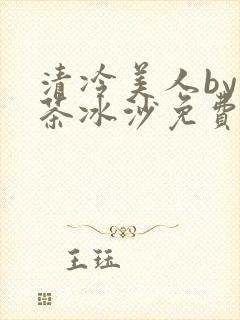 清冷美人by
茶冰沙免費
王珏